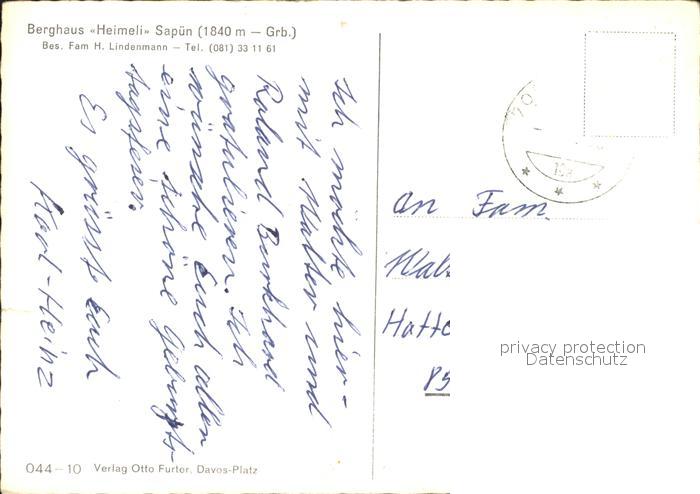 Berghaus «Heimeli» Sapün (1840 m — Grb.)
Bes. Fam H. Lindenmann — Tel. (081) 33 11 61
Ich möchte hier-
mit Walter und
Roland Burkhard
gratulieren. Ich
wünsche Euch allen
eine schöne Geburts-
tagsfeier.
Es grüsst Euch
Karl-Heinz
An Fam.
Wal
Hatto
85
privacy protection
Datenschutz
044–10 Verlag Otto Furter, Davos-Platz